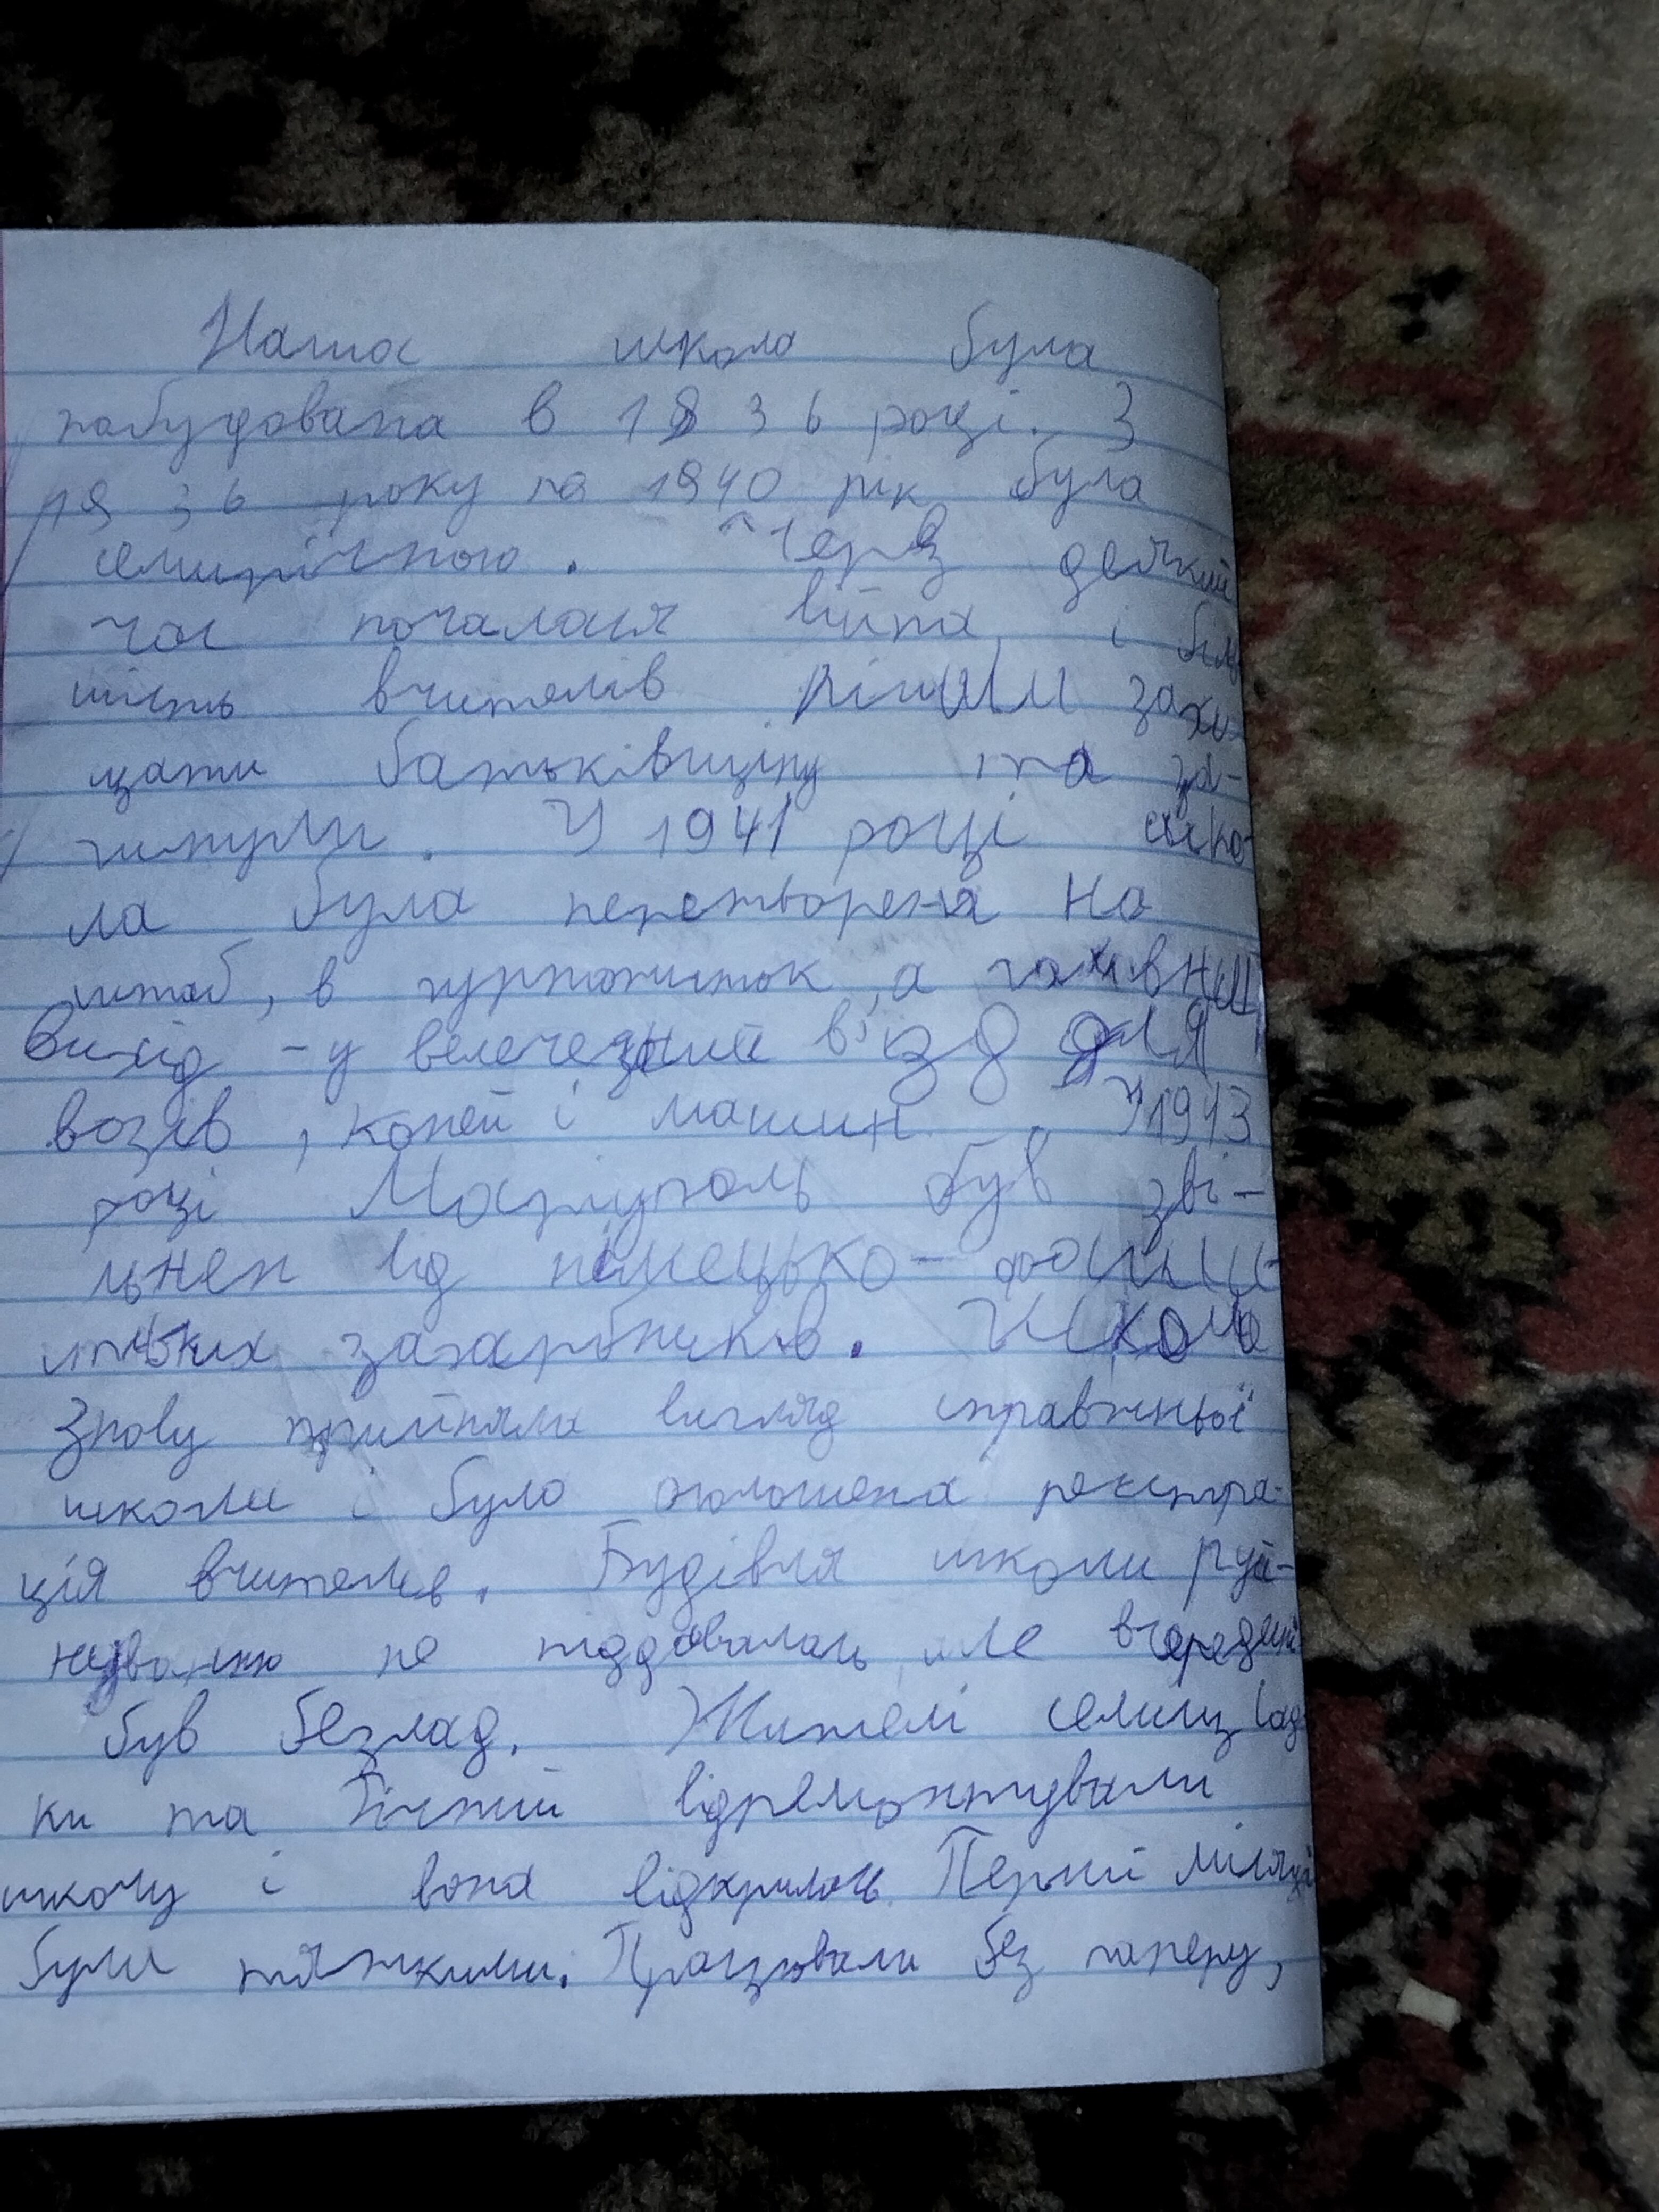 Наша школа була
побудована в 1936 році. З
1936 року па 1940 рік була
семирічною. Через деякий
час почалася війна і біль
шість вчителів рішили захи-
щати батьківщіну та за-
гинули. У 1941 році шко-
ла була перетворена на
штаб, в гуртожиток, а головний
Вихід - у велечезний в'їзд для
возів, коней і машин. У 1943
році Маріуполь був зві-
льнен від німецько-фаши-
стських загарбників. Школа
Знову прийняла вигляд справжньої
школи і було оголошена реєстра-
ція вчителів. Будівля школи руй-
нуванню не піддавалась, але всередені
був безлад. Жителі селищ
ки та відремонтували
школу і вона відкрилась. Перші місяці
були тяжкими. Працювали без паперу,